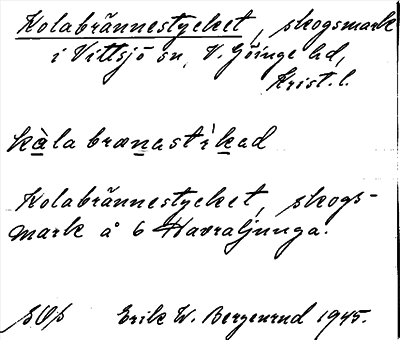 Kolabrännestycket, skogsmark
i Vittsjö sn, V. Göinge hd,
Krist. l.
kàla brænastìkad
Kolabrännestycket, skogs-
mark å 6 Havraljunga.
Erik W. Bergenrud 1945.